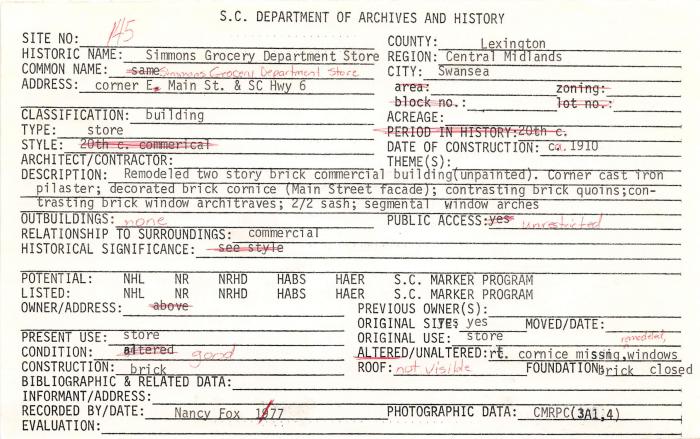 S.C. DEPARTMENT OF ARCHIVES AND HISTORY
SITE NO: 145
COUNTY: Lexington
HISTORIC NAME: Simmons Grocery Department Store
REGION: Central Midlands
COMMON NAME: same Simmons Grocery Department Store
CITY: Swansea
ADDRESS: corner E. Main St. & SC Hwy 6
area: zoning:
block no.: lot no.:
CLASSIFICATION: building
ACREAGE:
TYPE: store
PERIOD IN HISTORY: 20th c.
STYLE: 20th c. commerical
DATE OF CONSTRUCTION: ca. 1910
ARCHITECT/CONTRACTOR:
THEME(S):
DESCRIPTION: Remodeled two story brick commercial building(unpainted). Corner cast iron
pilaster; decorated brick cornice (Main Street facade); contrasting brick quoins;con-
trasting brick window architraves; 2/2 sash; segmental window arches
OUTBUILDINGS: none
PUBLIC ACCESS: yes unrestricted
RELATIONSHIP TO SURROUNDINGS: commercial
HISTORICAL SIGNIFICANCE: see style
POTENTIAL: NHL NR NRHD HABS HAER S.C. MARKER PROGRAM
LISTED: NHL NR NRHD HABS HAER S.C. MARKER PROGRAM
OWNER/ADDRESS: above
PREVIOUS OWNER(S):
ORIGINAL SITE: yes MOVED/DATE:
PRESENT USE: store
ORIGINAL USE: store
remodeled,
CONDITION: altered good
ALTERED/UNALTERED: rt. cornice missing,windows
CONSTRUCTION: brick
ROOF: not visible FOUNDATION: brick closed
BIBLIOGRAPHIC & RELATED DATA:
INFORMANT/ADDRESS:
RECORDED BY/DATE: Nancy Fox 1977
PHOTOGRAPHIC DATA: CMRPC(3A1,4)
EVALUATION: